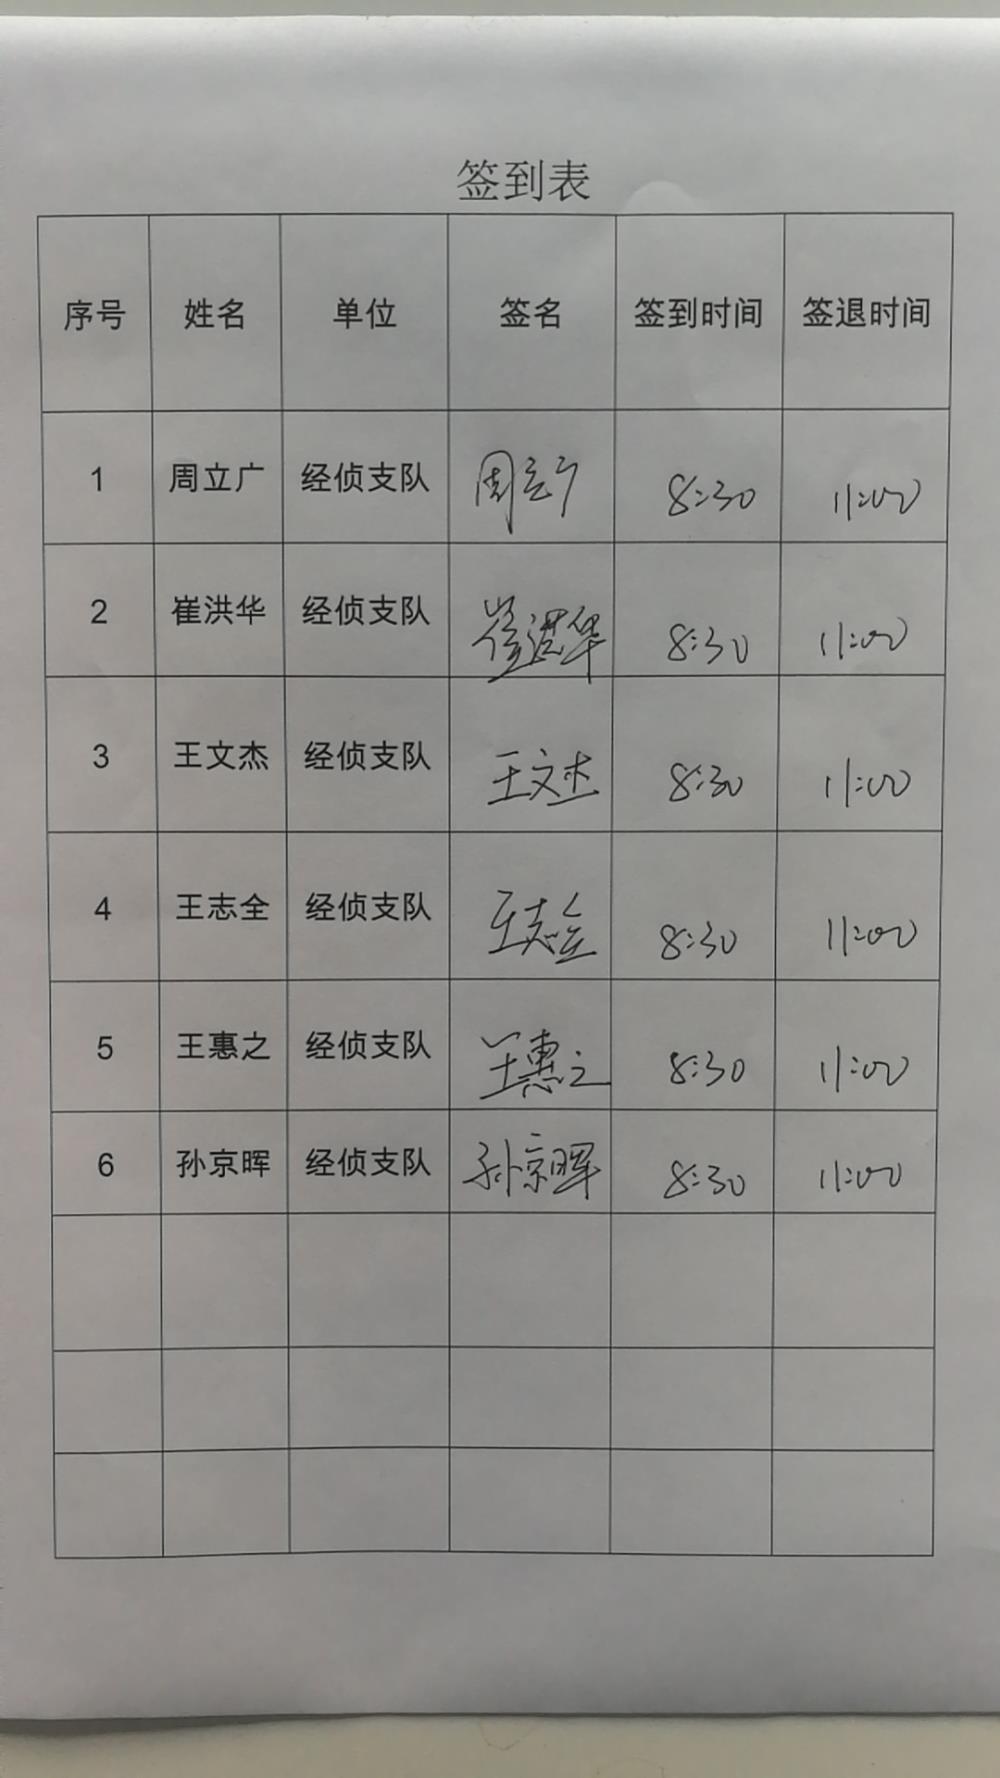 签到表
序号 姓名 单位 签名 签到时间 签退时间
1 周立广 经侦支队 周立广 8:30 11:00
2 崔洪华 经侦支队 崔洪华 8:30 11:00
3 王文杰 经侦支队 王文杰 8:30 11:00
4 王志全 经侦支队 王志全 8:30 11:00
5 王惠之 经侦支队 王惠之 8:30 11:00
6 孙京晖 经侦支队 孙京晖 8:30 11:00